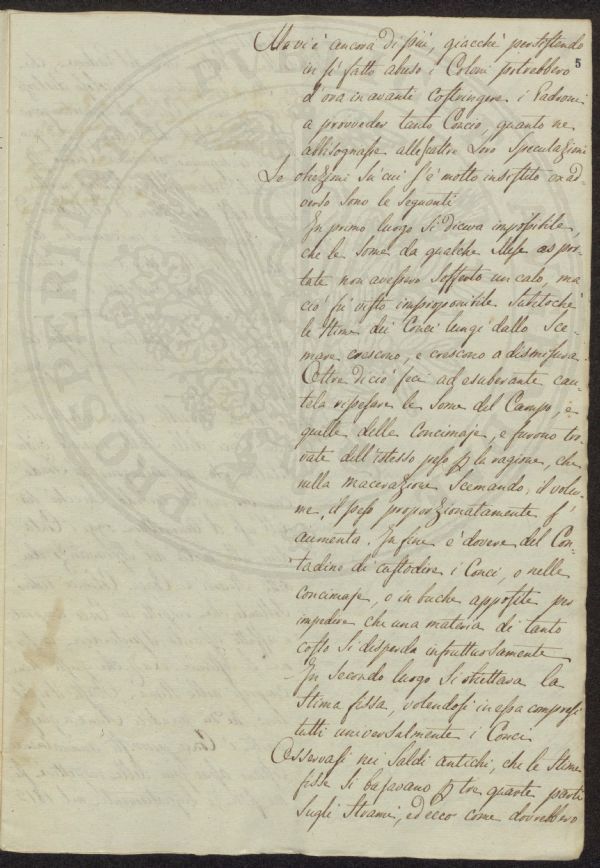 Ma vi è ancora di più, giacchè persistendo
5
in sì fatto abuso i Coloni potrebbero
d'ora in avanti costringere i Padroni
a provveder tanto Concio, quanto ne
abbisognasse alle scaltre Loro speculazioni
Le obiezioni su cui s'è molto insistito ex ad-
verso sono le seguenti
In primo luogo si diceva impossibile,
che le Some da qualche Mese aspor-
tate non avessero sofferto un calo, ma
ciò fù visto improponibile subitochè
le Stime dei Conci lungi dallo Sce-
mare crescono, e crescono a dismisura
Oltre di ciò feci ad esuberante cau-
tela ripesare le Some del Campo, e
quelle delle Concimaje, e furono tro-
vate dell'istesso peso p la ragione, che
nella macerazione Scemando, il volu-
me, il peso proporzionatamente s'
aumenta. In fine è dovere del Con-
tadino di custodire i Conci, o nelle
Concimaje, o in buche apposite per
impedire che una materia di tanto
costo si disperda infruttuosamente
In secondo luogo Si obiettava la
Stima fissa, volendosi in essa compresi
tutti universalmente i Conci
Osservasi nei Saldi antichi, che le Stime
fisse si basavano p tre quarte parti
sugli Strami, ed ecco come dovrebbero